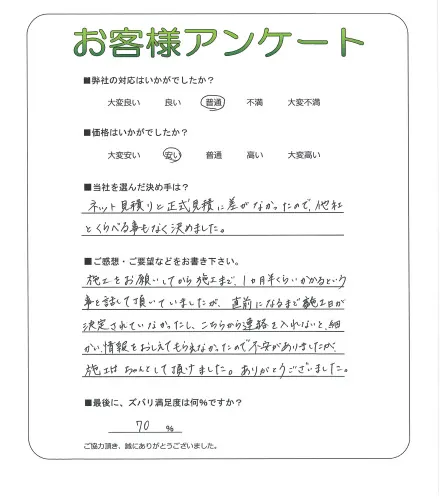 お客様アンケート
■弊社の対応はいかがでしたか?
大変良い 良い 普通 不満 大変不満
■価格はいかがでしたか?
大変安い 安い 普通 高い 大変高い
■当社を選んだ決め手は?
ネット見積りと正式見積に差がなかったので、他社
とくらべる事もなく決めました。
■ご感想・ご要望などをお書き下さい。
施工をお願いしてから施工まで、1ヵ月半くらいかかるという
事を話して頂いていましたが、直前になるまで施工日が
決定されていなかったし、こちらから連絡を入れないと、細
かい情報をおしえてもらえなかったので不安がありましたが、
施工はちゃんとして頂けました。ありがとうございました。
■最後に、ズバリ満足度は何%ですか?
70 %
ご協力頂き、誠にありがとうございました。